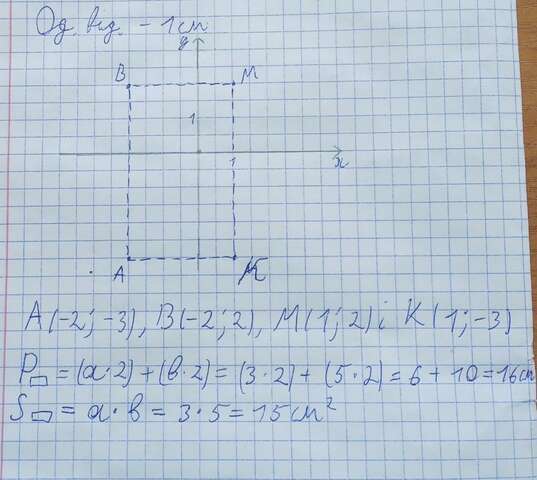 Од. від. - 1 см
y
B M
1
1 x
A K
A(-2; -3), B(-2; 2), M(1; 2) і K(1; -3)
P▭ = (a·2) + (в·2) = (3·2) + (5·2) = 6 + 10 = 16 см
S▭ = a·в = 3·5 = 15 см²